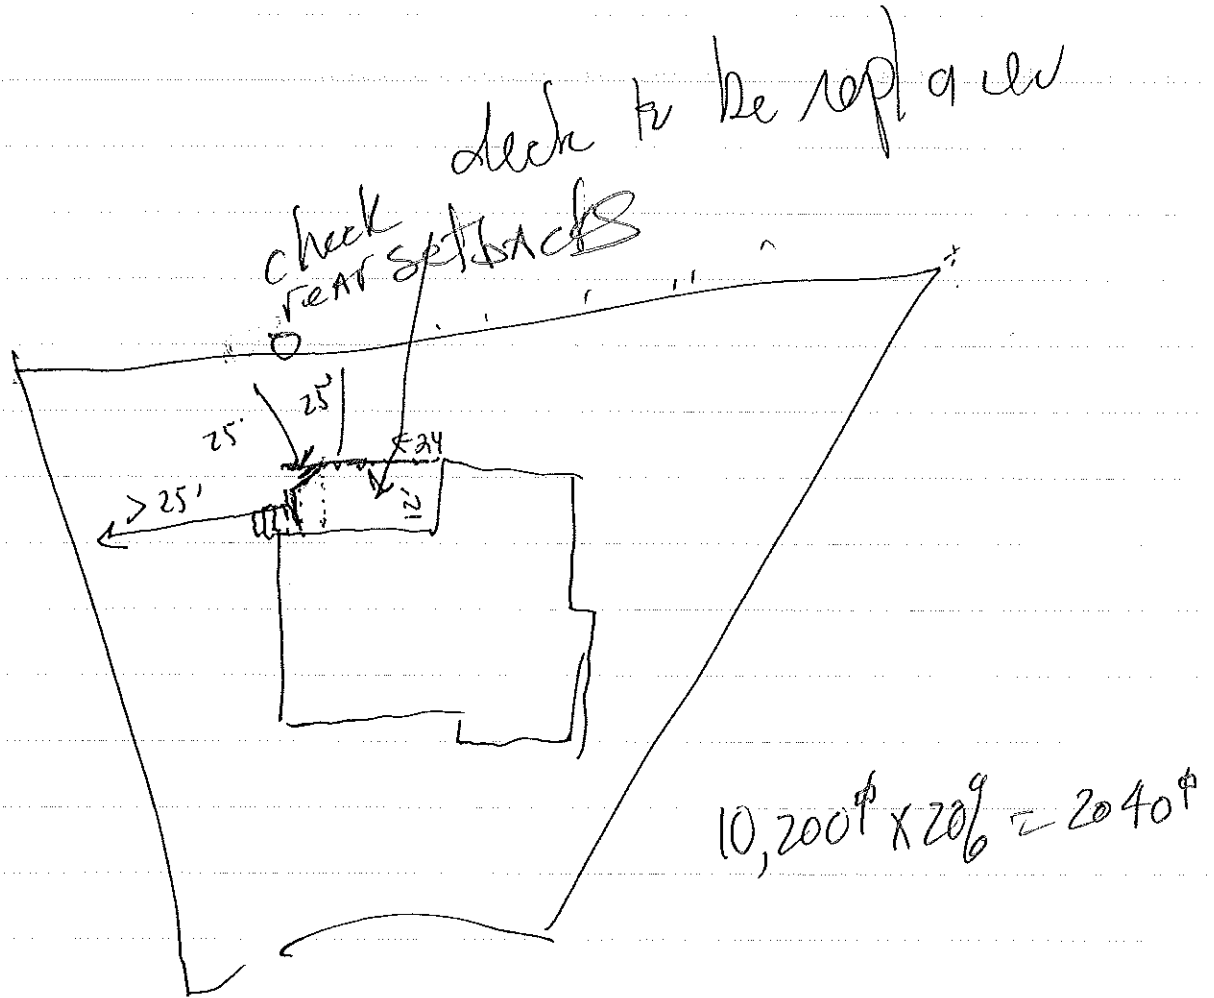 deck to be replaced
check
rear setbacks
25'
25'
←24
>25'
12'
10,200ф x 20% = 2040ф